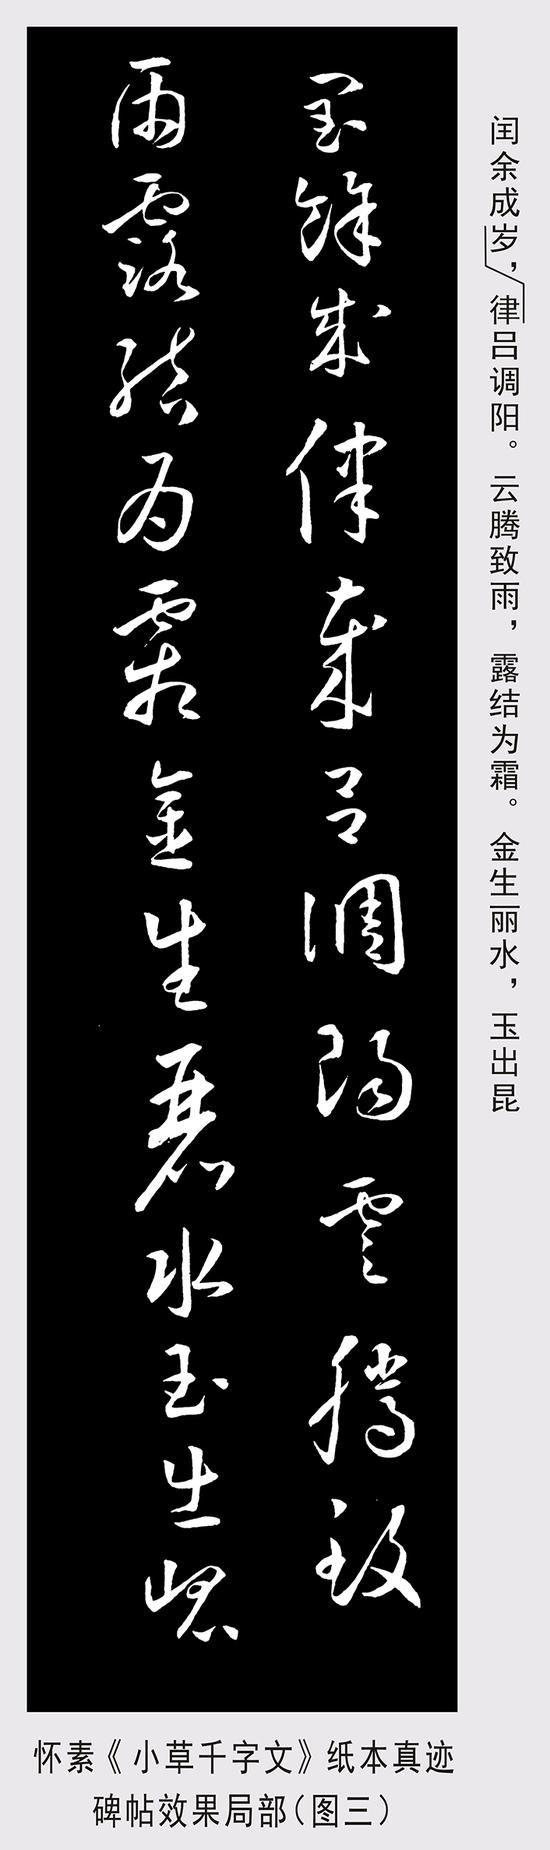 闰余成岁，律吕调阳。云腾致雨，露结为霜。金生丽水，玉出昆
閏餘成律歲呂調陽雲騰致
雨露結為霜金生麗水玉出崐
怀素《小草千字文》纸本真迹
碑帖效果局部（图三）